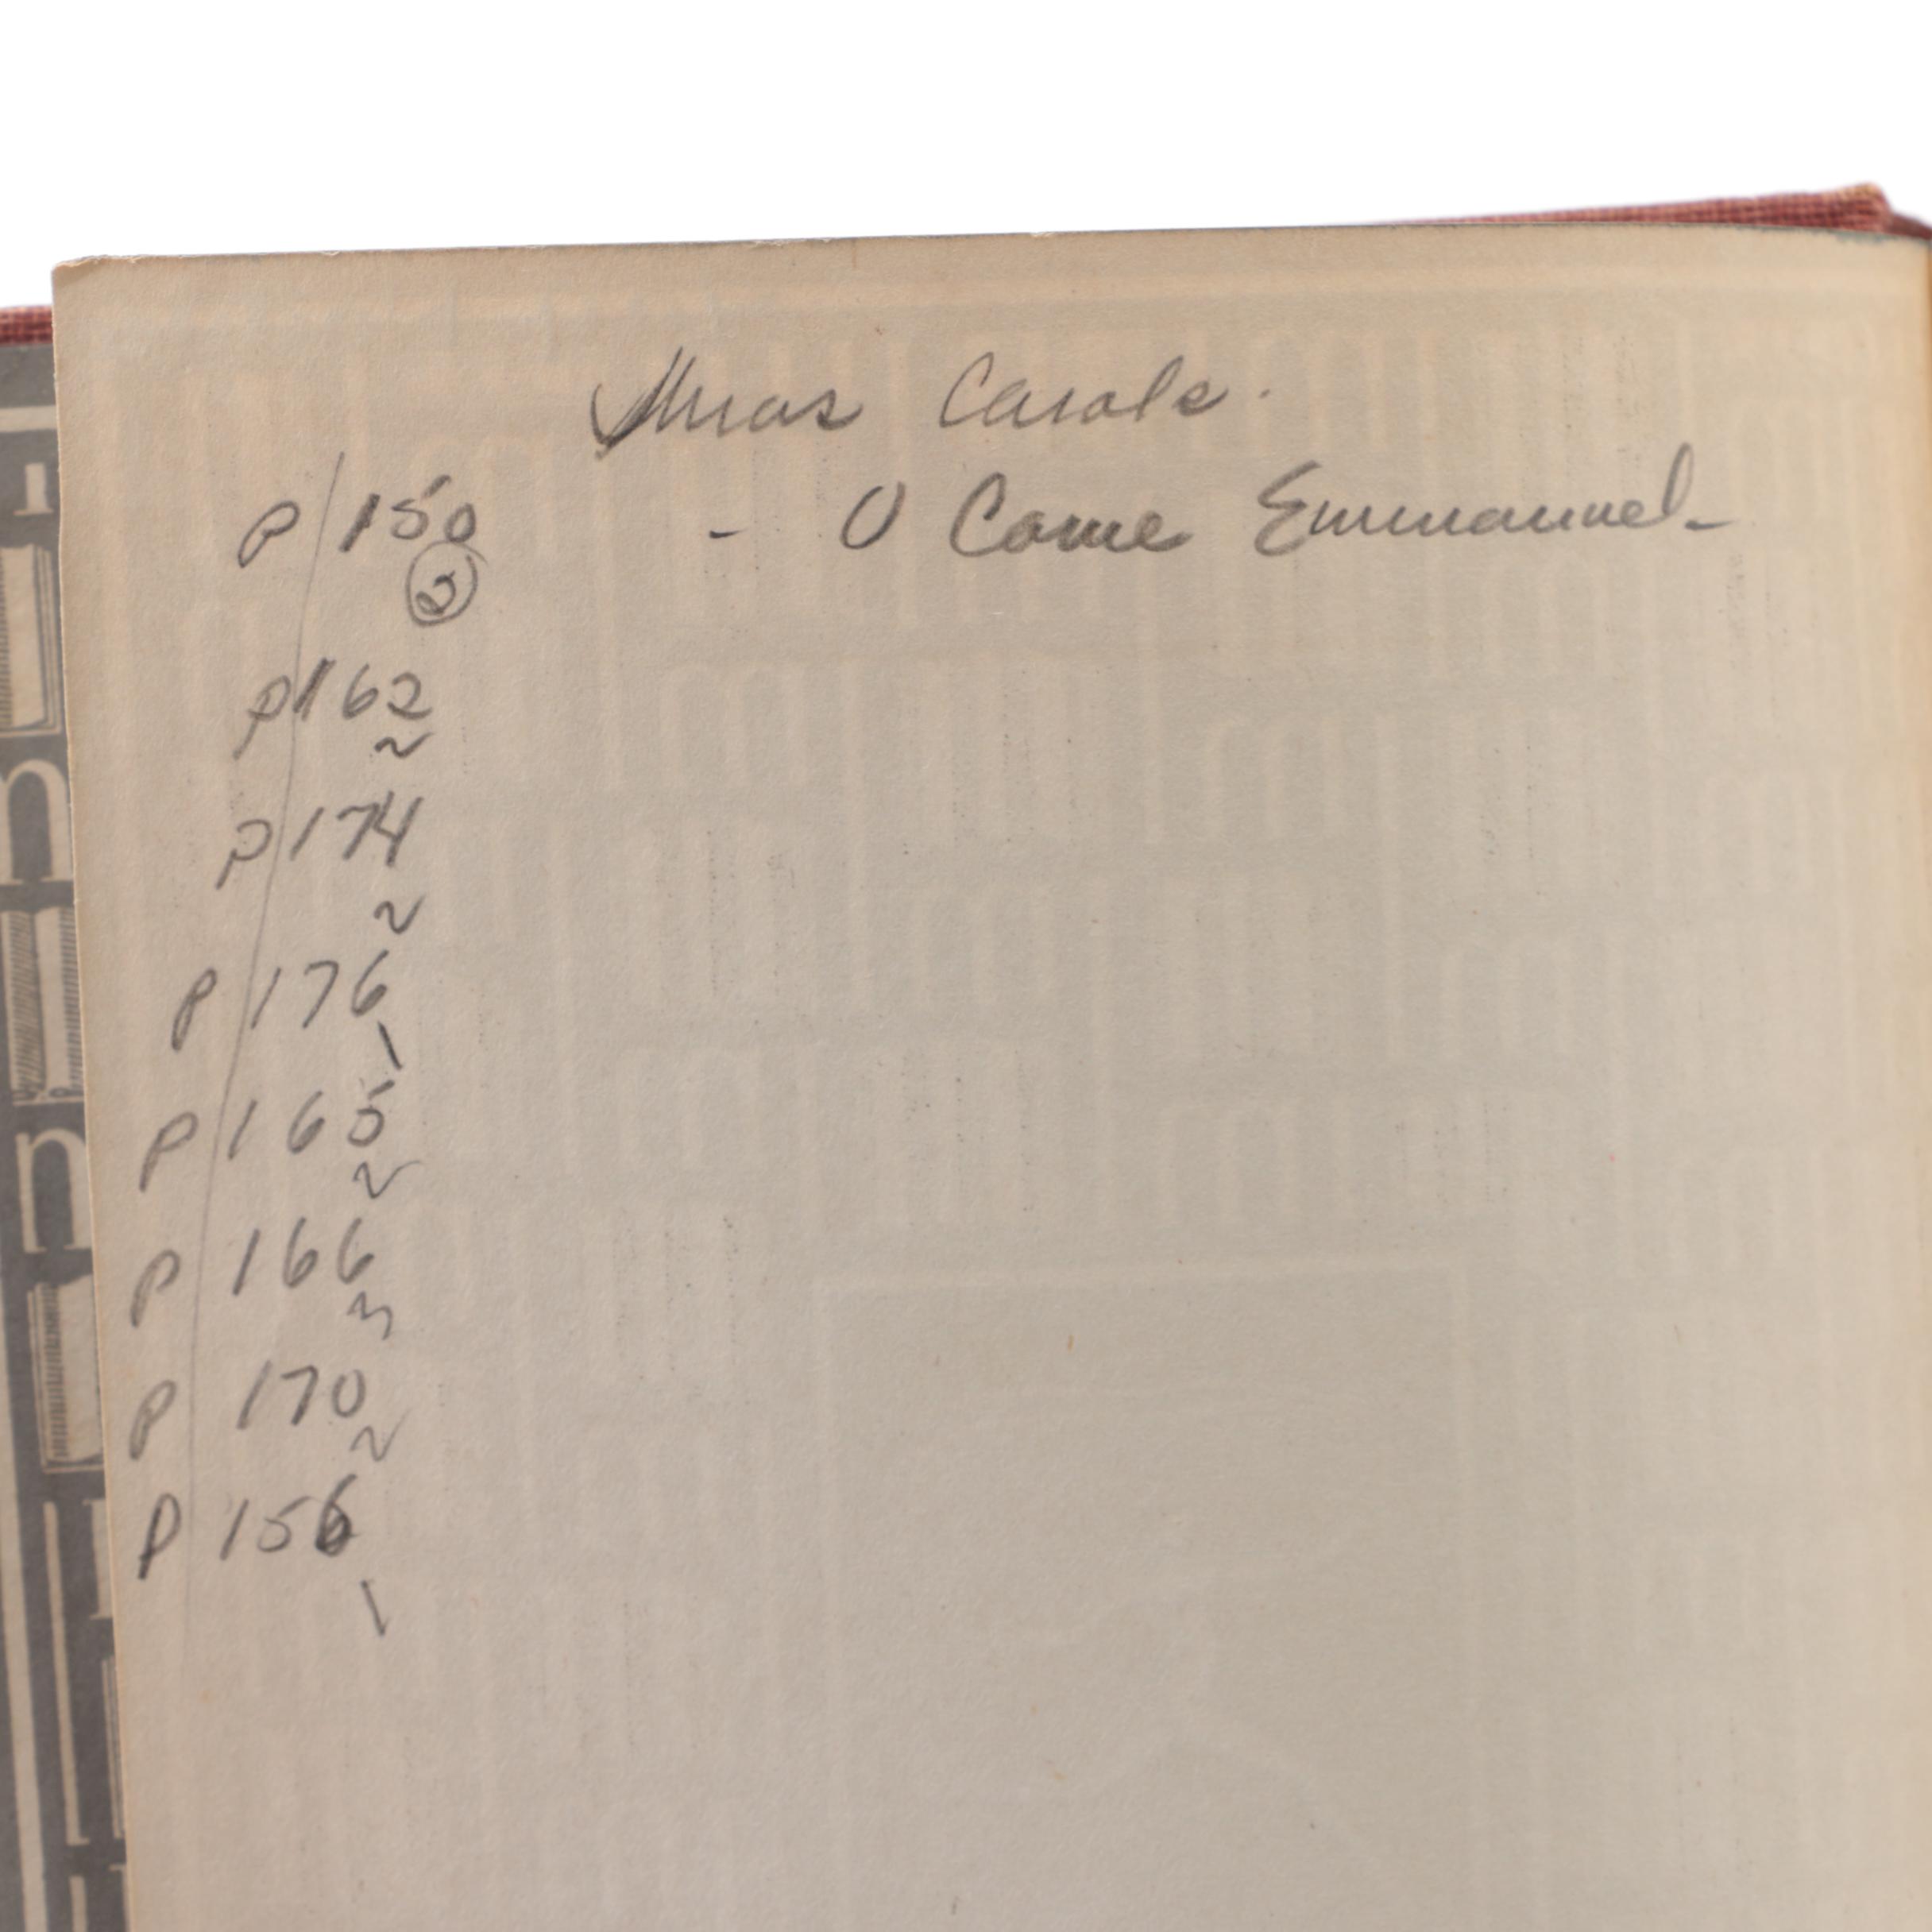 Xmas Carols.
P 150 - O Come Emmanuel -
2
P 162
2
P 174
2
P 176
1
P 165
2
P 166
3
P 170
2
P 156
1